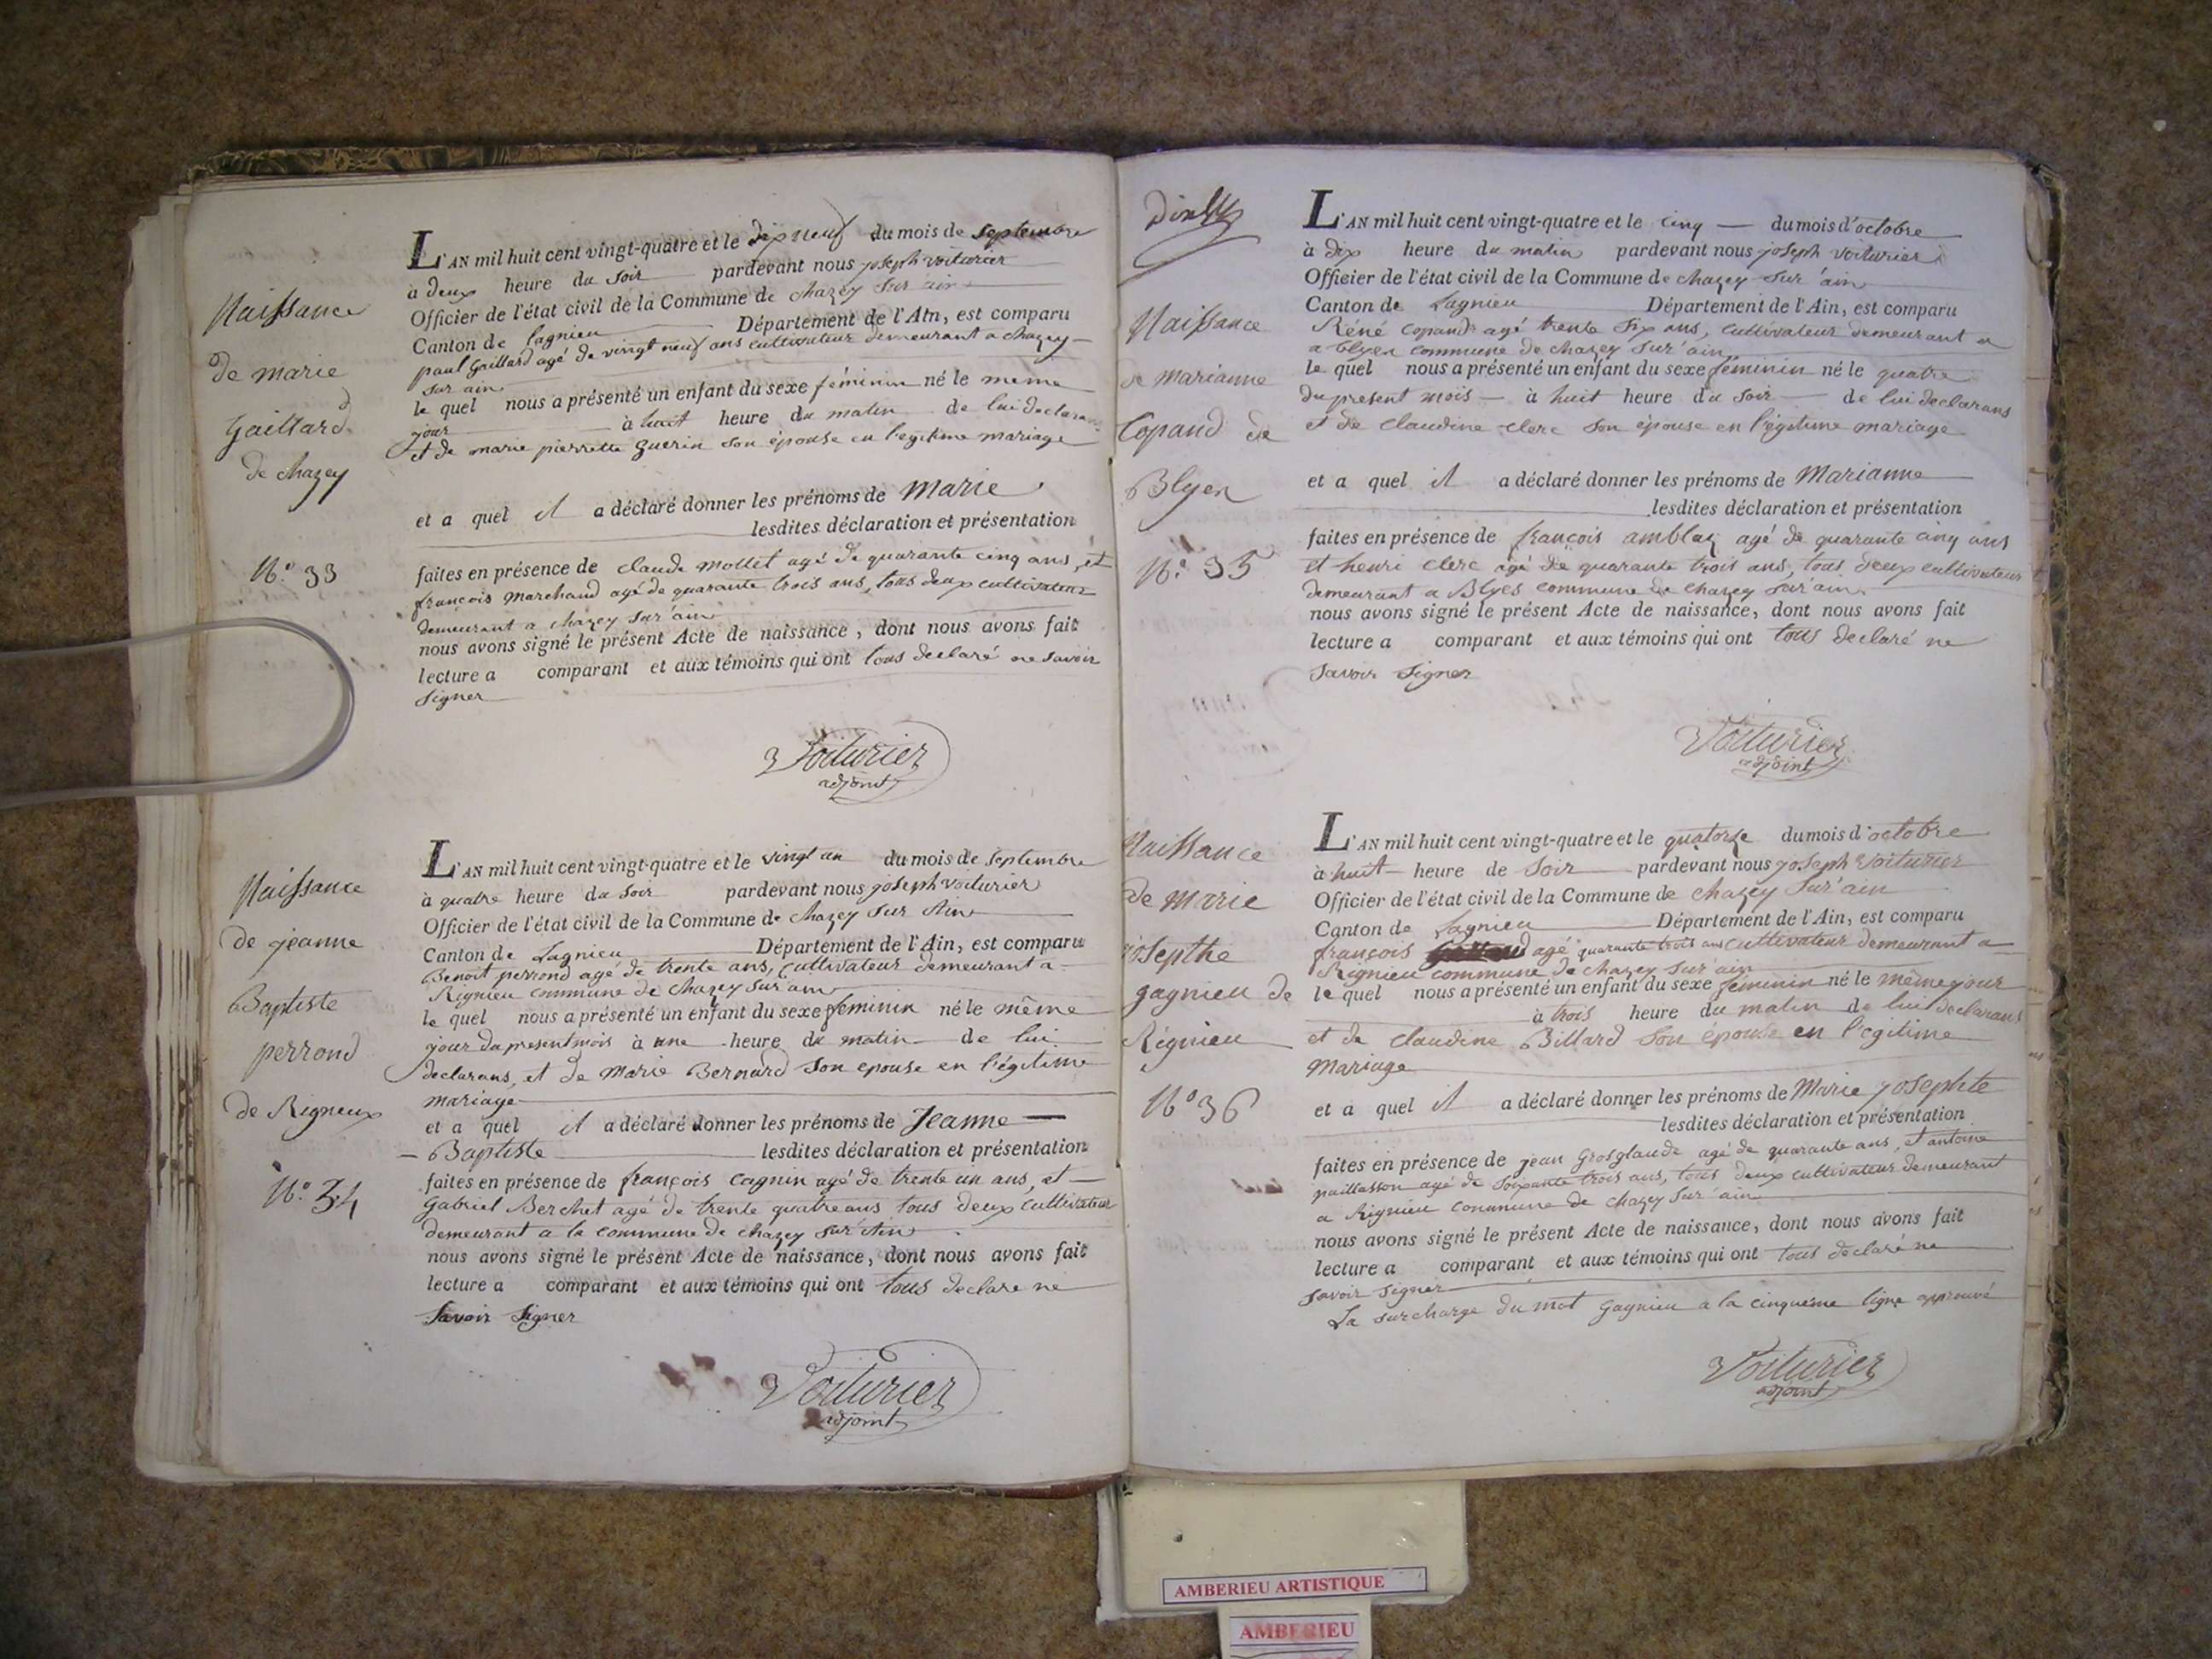 Naissance
de marie
Gaillard
de chazey
N.º 33
L'AN mil huit cent vingt-quatre et le dix neuf du mois de septembre
à deux heure du soir pardevant nous joseph voiturier
Officier de l'état civil de la Commune de chazey sur ain
Canton de lagnieu Département de l'Ain, est comparu
paul Gaillard agé de vingt neuf ans cultivateur demeurant a chazey
sur ain
le quel nous a présenté un enfant du sexe féminin né le meme
jour à huit heure du matin de lui declarans
et de marie pierrette Guerin son épouse en l'egitime mariage
et a quel il a déclaré donner les prénoms de Marie
lesdites déclaration et présentation
faites en présence de claude mollet agé de quarante cinq ans, et
françois marchand agé de quarante trois ans, tous deux cultivateur
demeurant a chazey sur ain
nous avons signé le présent Acte de naissance, dont nous avons fait
lecture a comparant et aux témoins qui ont tous declaré ne savoir
signer
Voiturier
adjoint
Naissance
de jeanne
Baptiste
perrond
de Rigneux
N.º 34
L'AN mil huit cent vingt-quatre et le vingt un du mois de septembre
à quatre heure du soir pardevant nous joseph voiturier
Officier de l'état civil de la Commune de chazey sur Ain
Canton de Lagnieu Département de l'Ain, est comparu
Benoit perrond agé de trente ans, cultivateur demeurant a
Rignieu commune de chazey sur ain
le quel nous a présenté un enfant du sexe feminin né le même
jour du present mois à une heure du matin de lui
declarans, et de Marie Bernard son epouse en l'égitime
mariage
et a quel il a déclaré donner les prénoms de Jeanne
Baptiste lesdites déclaration et présentation
faites en présence de françois cagnin agé de trente un ans, et
Gabriel Berchet agé de trente quatre ans tous deux cultivateur
demeurant a la commune de chazey sur Ain
nous avons signé le présent Acte de naissance, dont nous avons fait
lecture a comparant et aux témoins qui ont tous declare ne
Savoir Signer
Voiturier
adjoint
Naissance
de marianne
Copand de
Blyer
N.º 35
L'AN mil huit cent vingt-quatre et le cinq du mois d'octobre
à dix heure du matin pardevant nous joseph voiturier
Officier de l'état civil de la Commune de chazey sur ain
Canton de Lagnieu Département de l'Ain, est comparu
Réné copand agé trente six ans, cultivateur demeurant a
a blyer commune de chazey sur ain
le quel nous a présenté un enfant du sexe féminin né le quatre
du present mois à huit heure du soir de lui declarans
et de claudine clerc son épouse en l'égitime mariage
et a quel il a déclaré donner les prénoms de Marianne
lesdites déclaration et présentation
faites en présence de françois amblaz agé de quarante cinq ans
et henri clerc agé de quarante trois ans, tous deux cultivateur
demeurant a Blyes commune de chazey sur ain
nous avons signé le présent Acte de naissance, dont nous avons fait
lecture a comparant et aux témoins qui ont tous declaré ne
savoir signer
Voiturier
adjoint
Naissance
de marie
josephte
gagnieu de
Régnieu
N.º 36
L'AN mil huit cent vingt-quatre et le quatorze du mois d'octobre
à huit heure de soir pardevant nous joseph voiturier
Officier de l'état civil de la Commune de chazey sur ain
Canton de Lagnieu Département de l'Ain, est comparu
françois agé quarante trois ans cultivateur demeurant a
Rignieu commune de chazey sur ain
le quel nous a présenté un enfant du sexe féminin né le même jour
à trois heure du matin de lui declarans
et de claudine Billard son épouse en l'egitime
mariage
et a quel il a déclaré donner les prénoms de Marie josephte
lesdites déclaration et présentation
faites en présence de jean Grosglaude agé de quarante ans, et antoine
paillasson agé de soixante trois ans, tous deux cultivateur demeurant
a Rignieu commune de chazey sur ain
nous avons signé le présent Acte de naissance, dont nous avons fait
lecture a comparant et aux témoins qui ont tous declaré ne
savoir signer
La surcharge du mot Gagnieu a la cinquième ligne approuvé
Voiturier
adjoint
AMBERIEU ARTISTIQUE
AMBERIEU